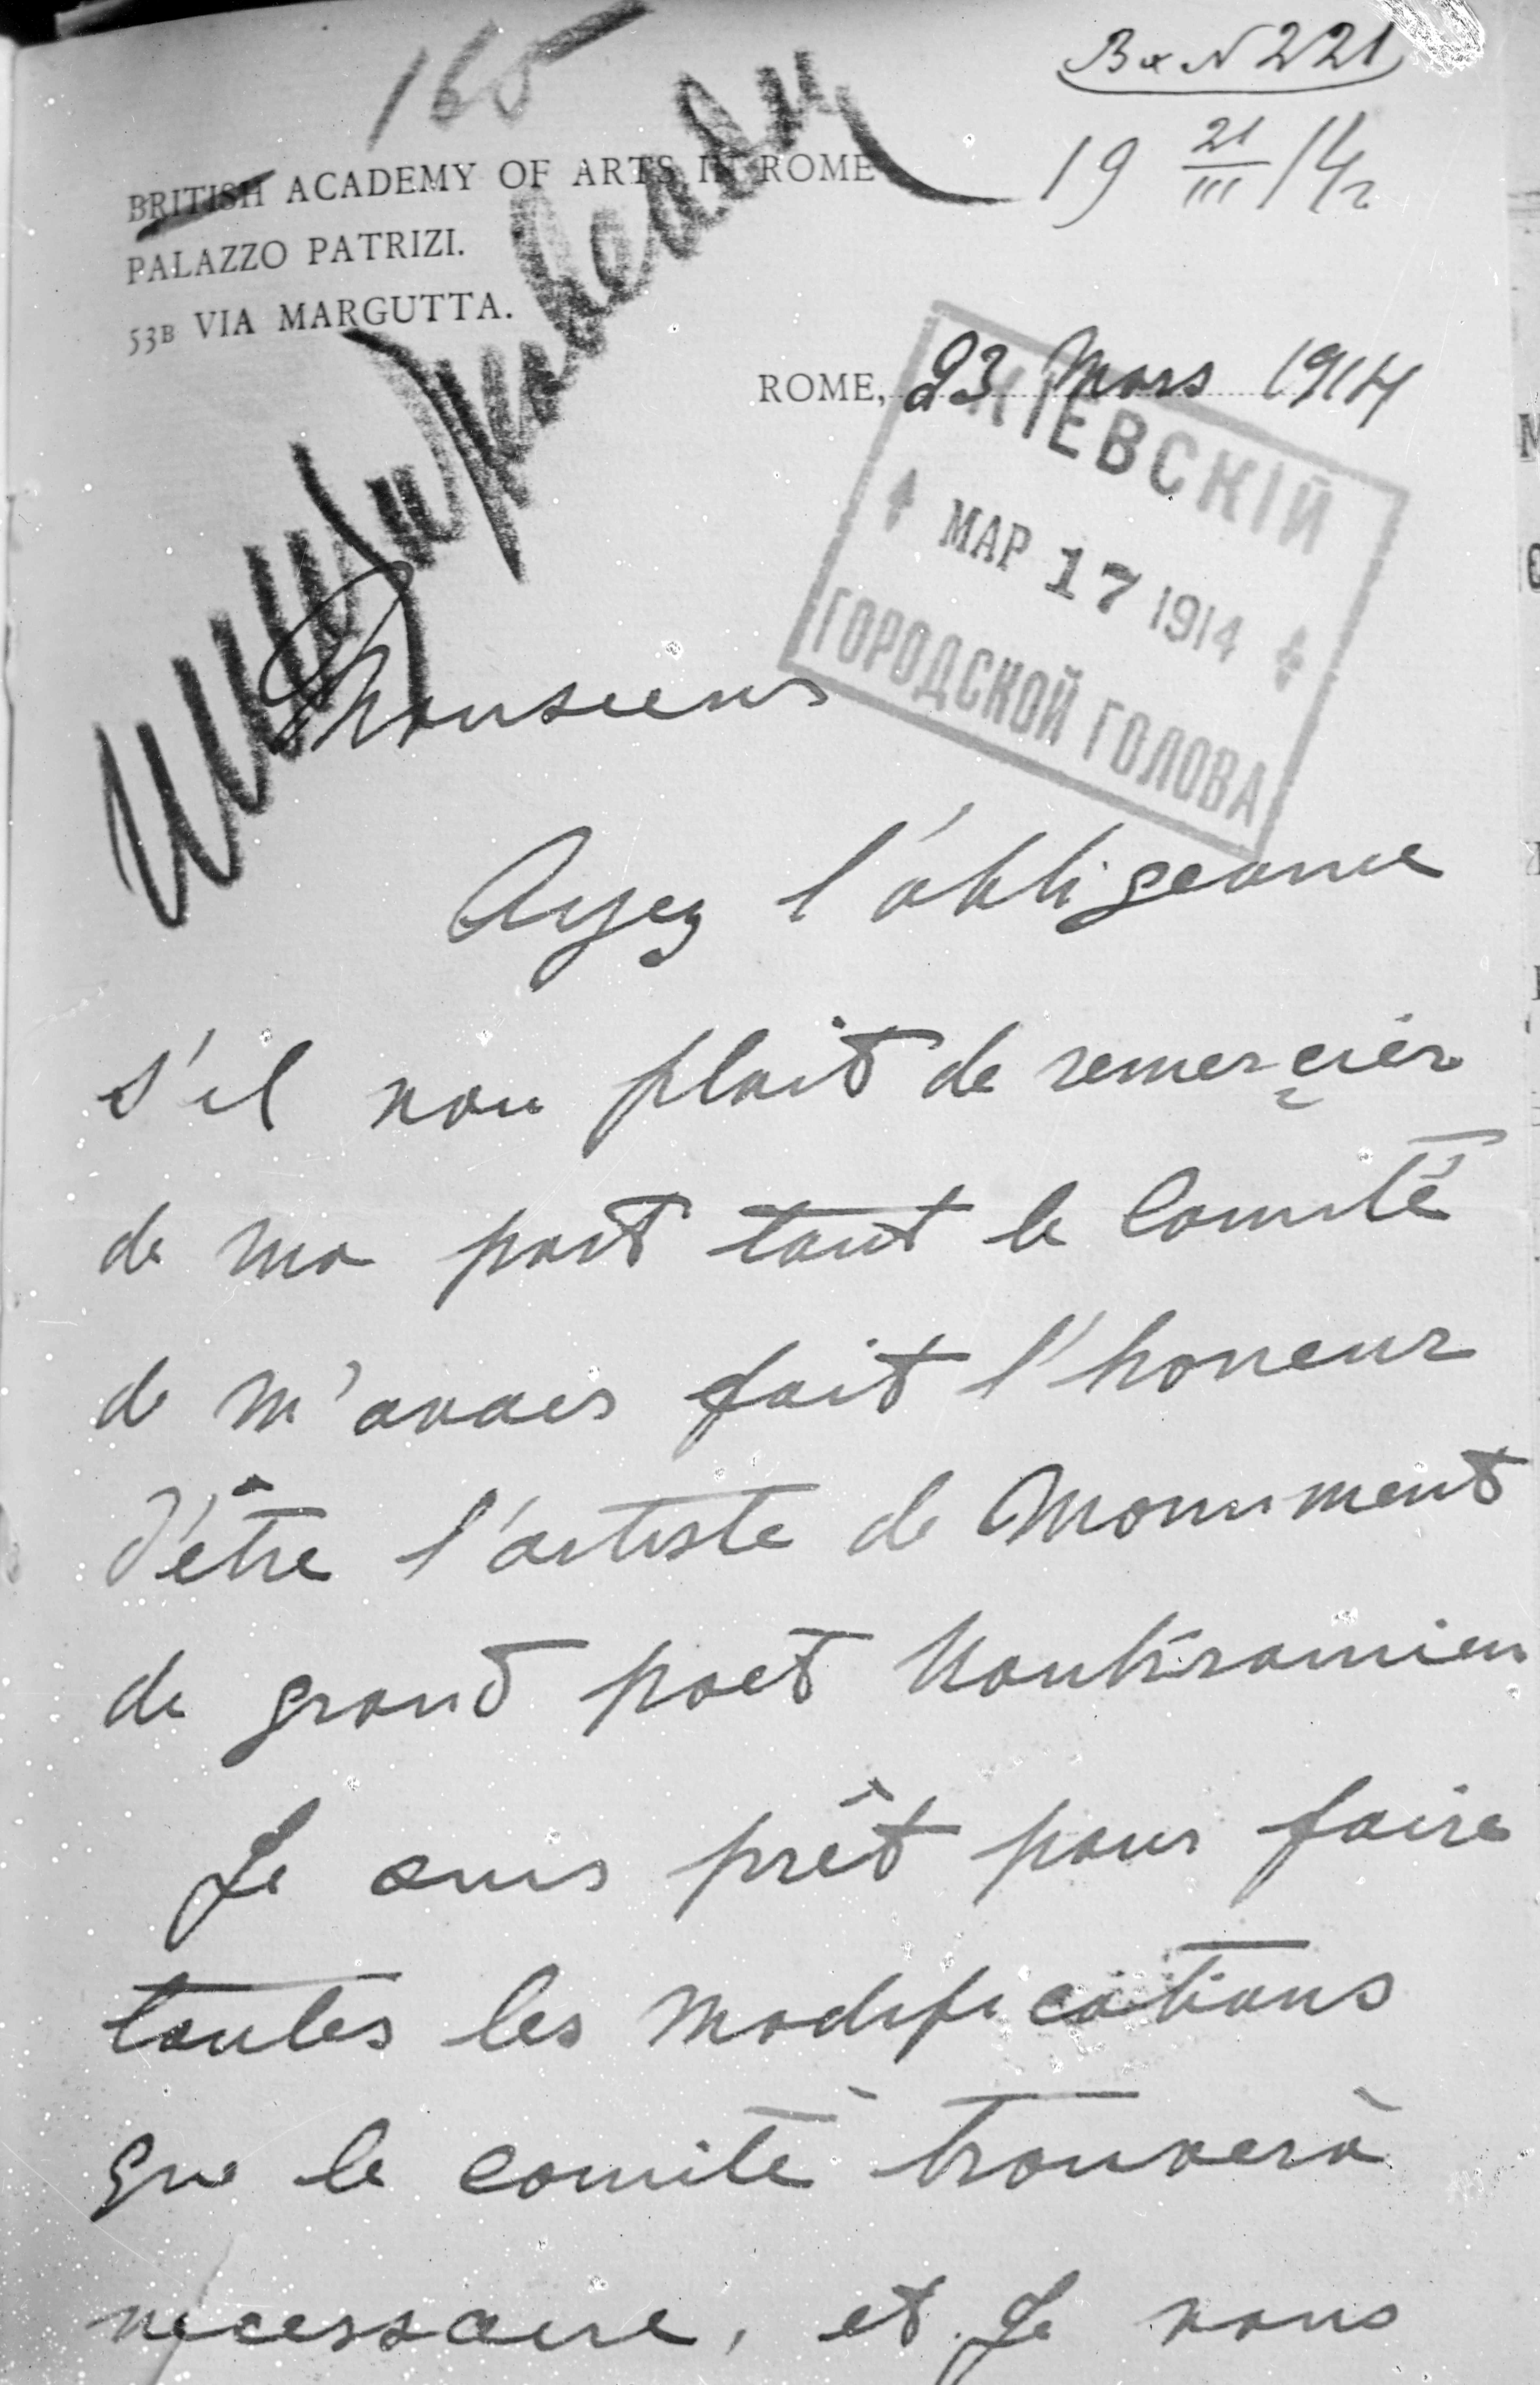 165
Вх № 221
19 21/III 14 г
BRITISH ACADEMY OF ARTS IN ROME
PALAZZO PATRIZI.
53B VIA MARGUTTA.
ROME, 23 Mars 1914
КІЕВСКІЙ
МАР 17 1914
ГОРОДСКОЙ ГОЛОВА
Monsieur
Ayez l'obligeance
s'il vou plait de remercier
de ma part tout le Comité
de m'avoir fait l'honeur
d'être l'artiste de Monument
de grand poet
Je suis prêt pour faire
toutes les modifications
que le comitè trouverà
necessaire, et Je vous